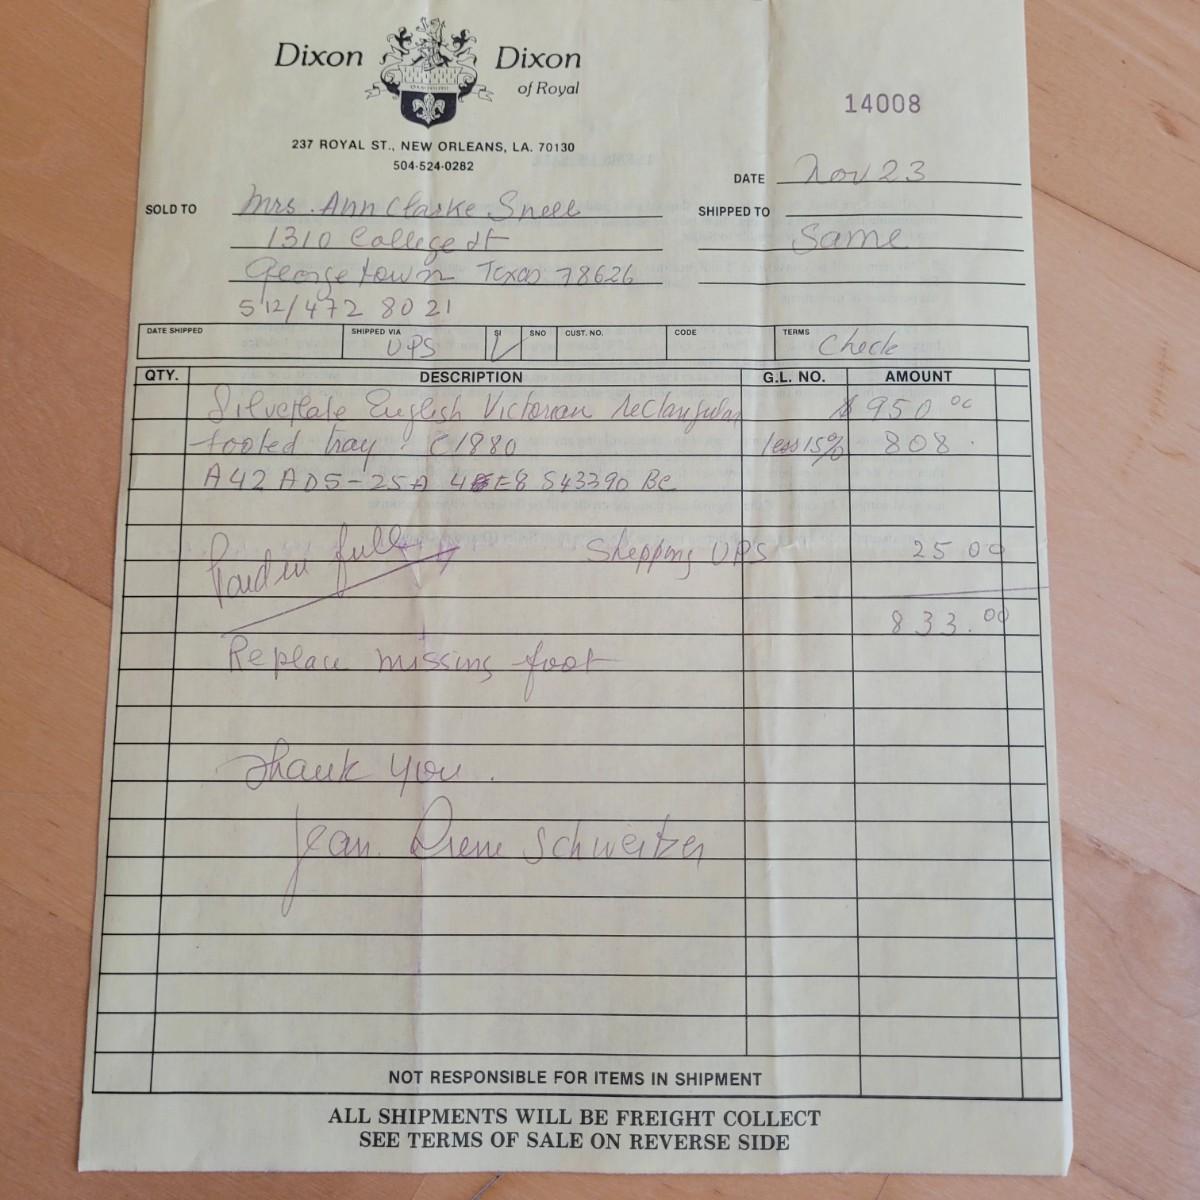 Dixon Dixon
of Royal
14008
237 ROYAL ST., NEW ORLEANS, LA. 70130
504-524-0282
DATE Nov 23
SOLD TO Mrs. Ann Clarke Snell
SHIPPED TO
1310 College St
Same
Georgetown Texas 78626
512/472 8021
DATE SHIPPED SHIPPED VIA UPS SI SNO CUST. NO. CODE TERMS Check
QTY. DESCRIPTION G.L. NO. AMOUNT
Silverplate English Victorian rectangular $950 00
footed tray. C1880 less 15% 808.
A42 AD5-25A E8 S43390 BC
Paid in full Shipping UPS 25 00
833.00
Replace missing foot
Thank you.
Jean Schweitzer
NOT RESPONSIBLE FOR ITEMS IN SHIPMENT
ALL SHIPMENTS WILL BE FREIGHT COLLECT
SEE TERMS OF SALE ON REVERSE SIDE